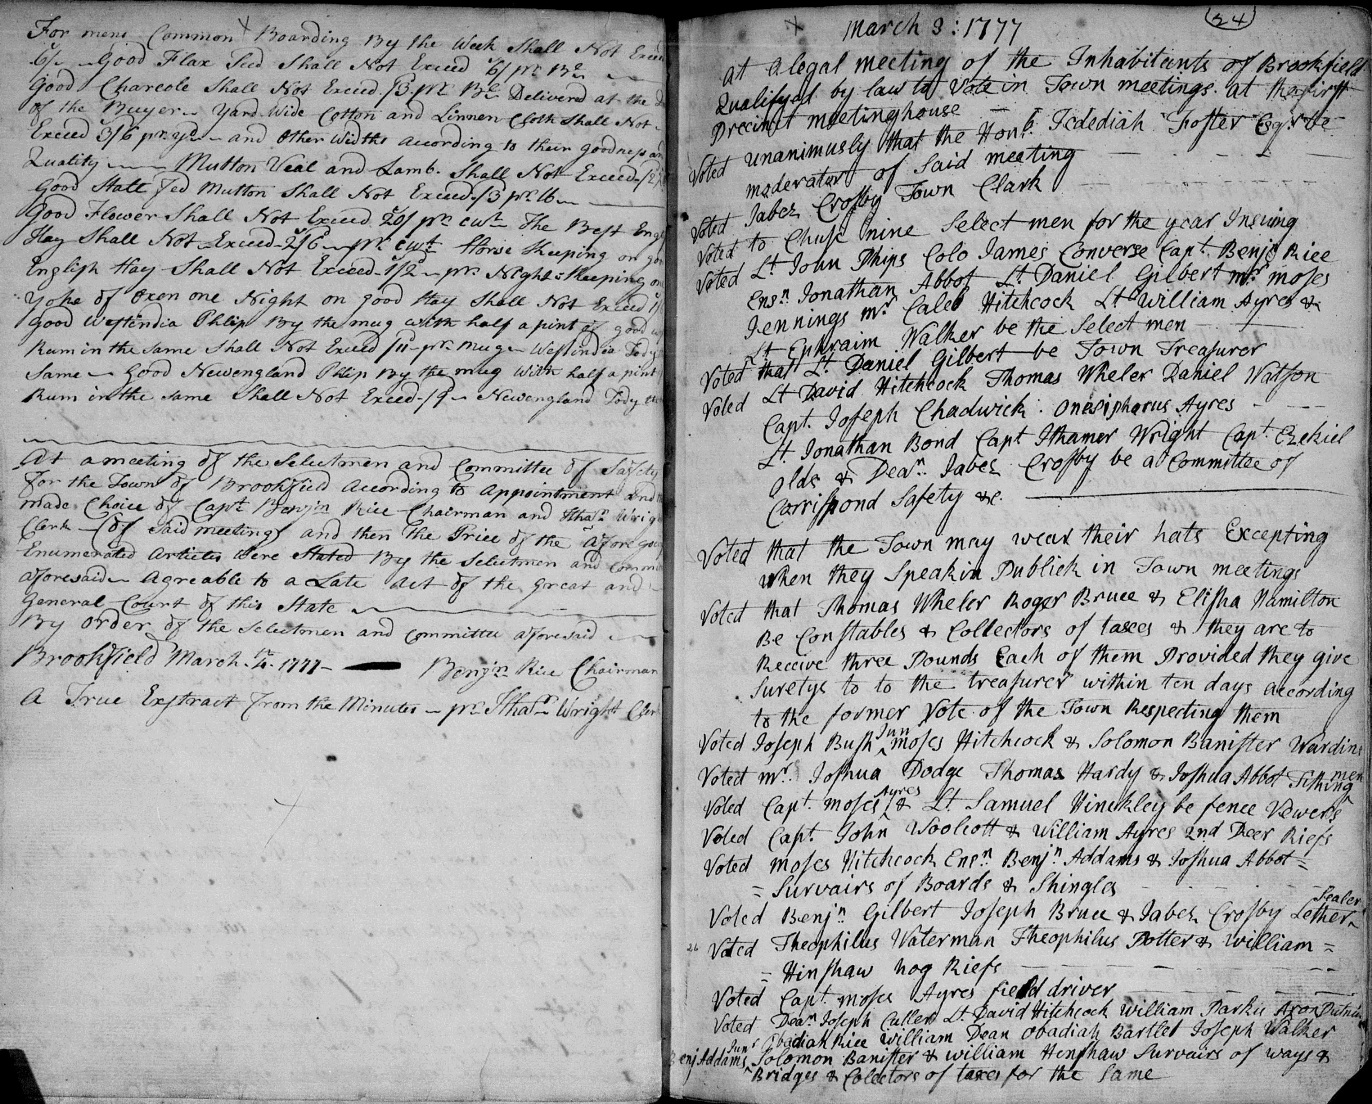 For mens Common Boarding By the Week Shall Not Exceed
6/ Good Flax Seed Shall Not Exceed 6/ pr. Bl.
Good Charcole Shall Not Exceed /3 pr. Bl. Deliverd at the
of the Buyer Yard Wide Cotton and Linnen Cloth Shall Not
Exceed 3/6 pr. yd and Other Widths according to their goodness an
Quality Mutton Veal and Lamb. Shall Not Exceed
Good Stall fed Mutton Shall Not Exceed /3 pr. lb
Good Flower Shall Not Exceed 20/ pr. cwt The Best Eng
Hay Shall Not Exceed 2/6 pr. cwt Horse Keeping on go
English Hay Shall Not Exceed 1/2 pr. Night Keeping
Yoke of Oxen one Night on good Hay Shall Not Exceed
Good Westendia Phlip By the mug with half a pint of good
Rum in the Same Shall Not Exceed /11 pr. mug Westendia Tody
Same Good Newengland Phlip By the mug with half a pint
Rum in the same Shall Not Exceed /9 Newengland Tody
At a meeting of the Selectmen and Committee of Safety
For the Town of Brookfield According to Appointment and
made Choice of Capt Benjn Rice Chairman and Ithar Wrig
Clerk (of Said meeting) and then the Price of the afore going
Enumerated articles Were Stated By the Selectmen and Comm
aforesaid Agreable to a Late Act of the Great and
General Court of this State
By order of the Selectmen and committee aforesaid
Brookfield March 4 1777 Benjn Rice Chairman
A True Exstract from the Minutes pr. Ithar Wright Cler
24
March 3: 1777
at a legal meeting of the Inhabitants of Brookfield
Qualifyed by law to Vote in Town meetings at the first
Precinct meetinghouse
Voted unanimusly that the Honr Jedediah Foster Esqr be
moderator of Said meeting
Voted Jabez Crosby Town Clark
Voted to Chuse nine Select men for the year Insuing
Voted Lt John Phips Colo James Converse Capt Benj Rice
Ensn Jonathan Abbot Lt Daniel Gilbert mr moses
Jennings mr Caleb Hitchcock Lt William Ayres &
Lt Ephraim Walker be the Select men
Voted that Lt Daniel Gilbert be Town Treasurer
Voted Lt David Hitchcock Thomas Wheler Daniel Watson
Capt. Joseph Chadwick Onesiphorus Ayres
Lt Jonathan Bond Capt Ithamer Wright Capt Ezekiel
Olds & Dean Jabez Crosby be a Committee of
Carrispond Safety &c.
Voted that the Town may wear their hats Excepting
when they Speak in Publick in Town meetings
Voted that Thomas Wheler Roger Bruce & Elisha Hamilton
Be Constables & Collectors of taxes & they are to
Receive three Pounds Each of them Provided they give
Suretys to to the treasurer within ten days according
to the former Vote of the Town Respecting them
Voted Joseph Bush Jun moses Hitchcock & Solomon Banister Wardins
Voted mr. Joshua Dodge Thomas Hardy & Joshua Abbot Tithing men
Voted Capt. moses Ayres & Lt Samuel Hinckley be fence Vewers
Voted Capt. John Woolcott & William Ayres 2nd Deer Riefs
Voted Moses Hitchcock Ensn Benjn Addams & Joshua Abbot =
= Survairs of Boards & Shingles
Voted Benjn Gilbert Joseph Bruce & Jabez Crosby Lether Sealer
Voted Theophilus Waterman Theophilus Potter & William =
= Hinshaw hog Riefs
Voted Capt. moses Ayres field driver
Voted Dean Joseph Cutler Lt David Hitchcock William Parks Aron
Obadiah Rice William Dean Obadiah Bartlet Joseph Walker
Benj Addams Junr Solomon Banister & William Henshaw Survairs of ways &
Bridges & Collectors of taxes for the Same